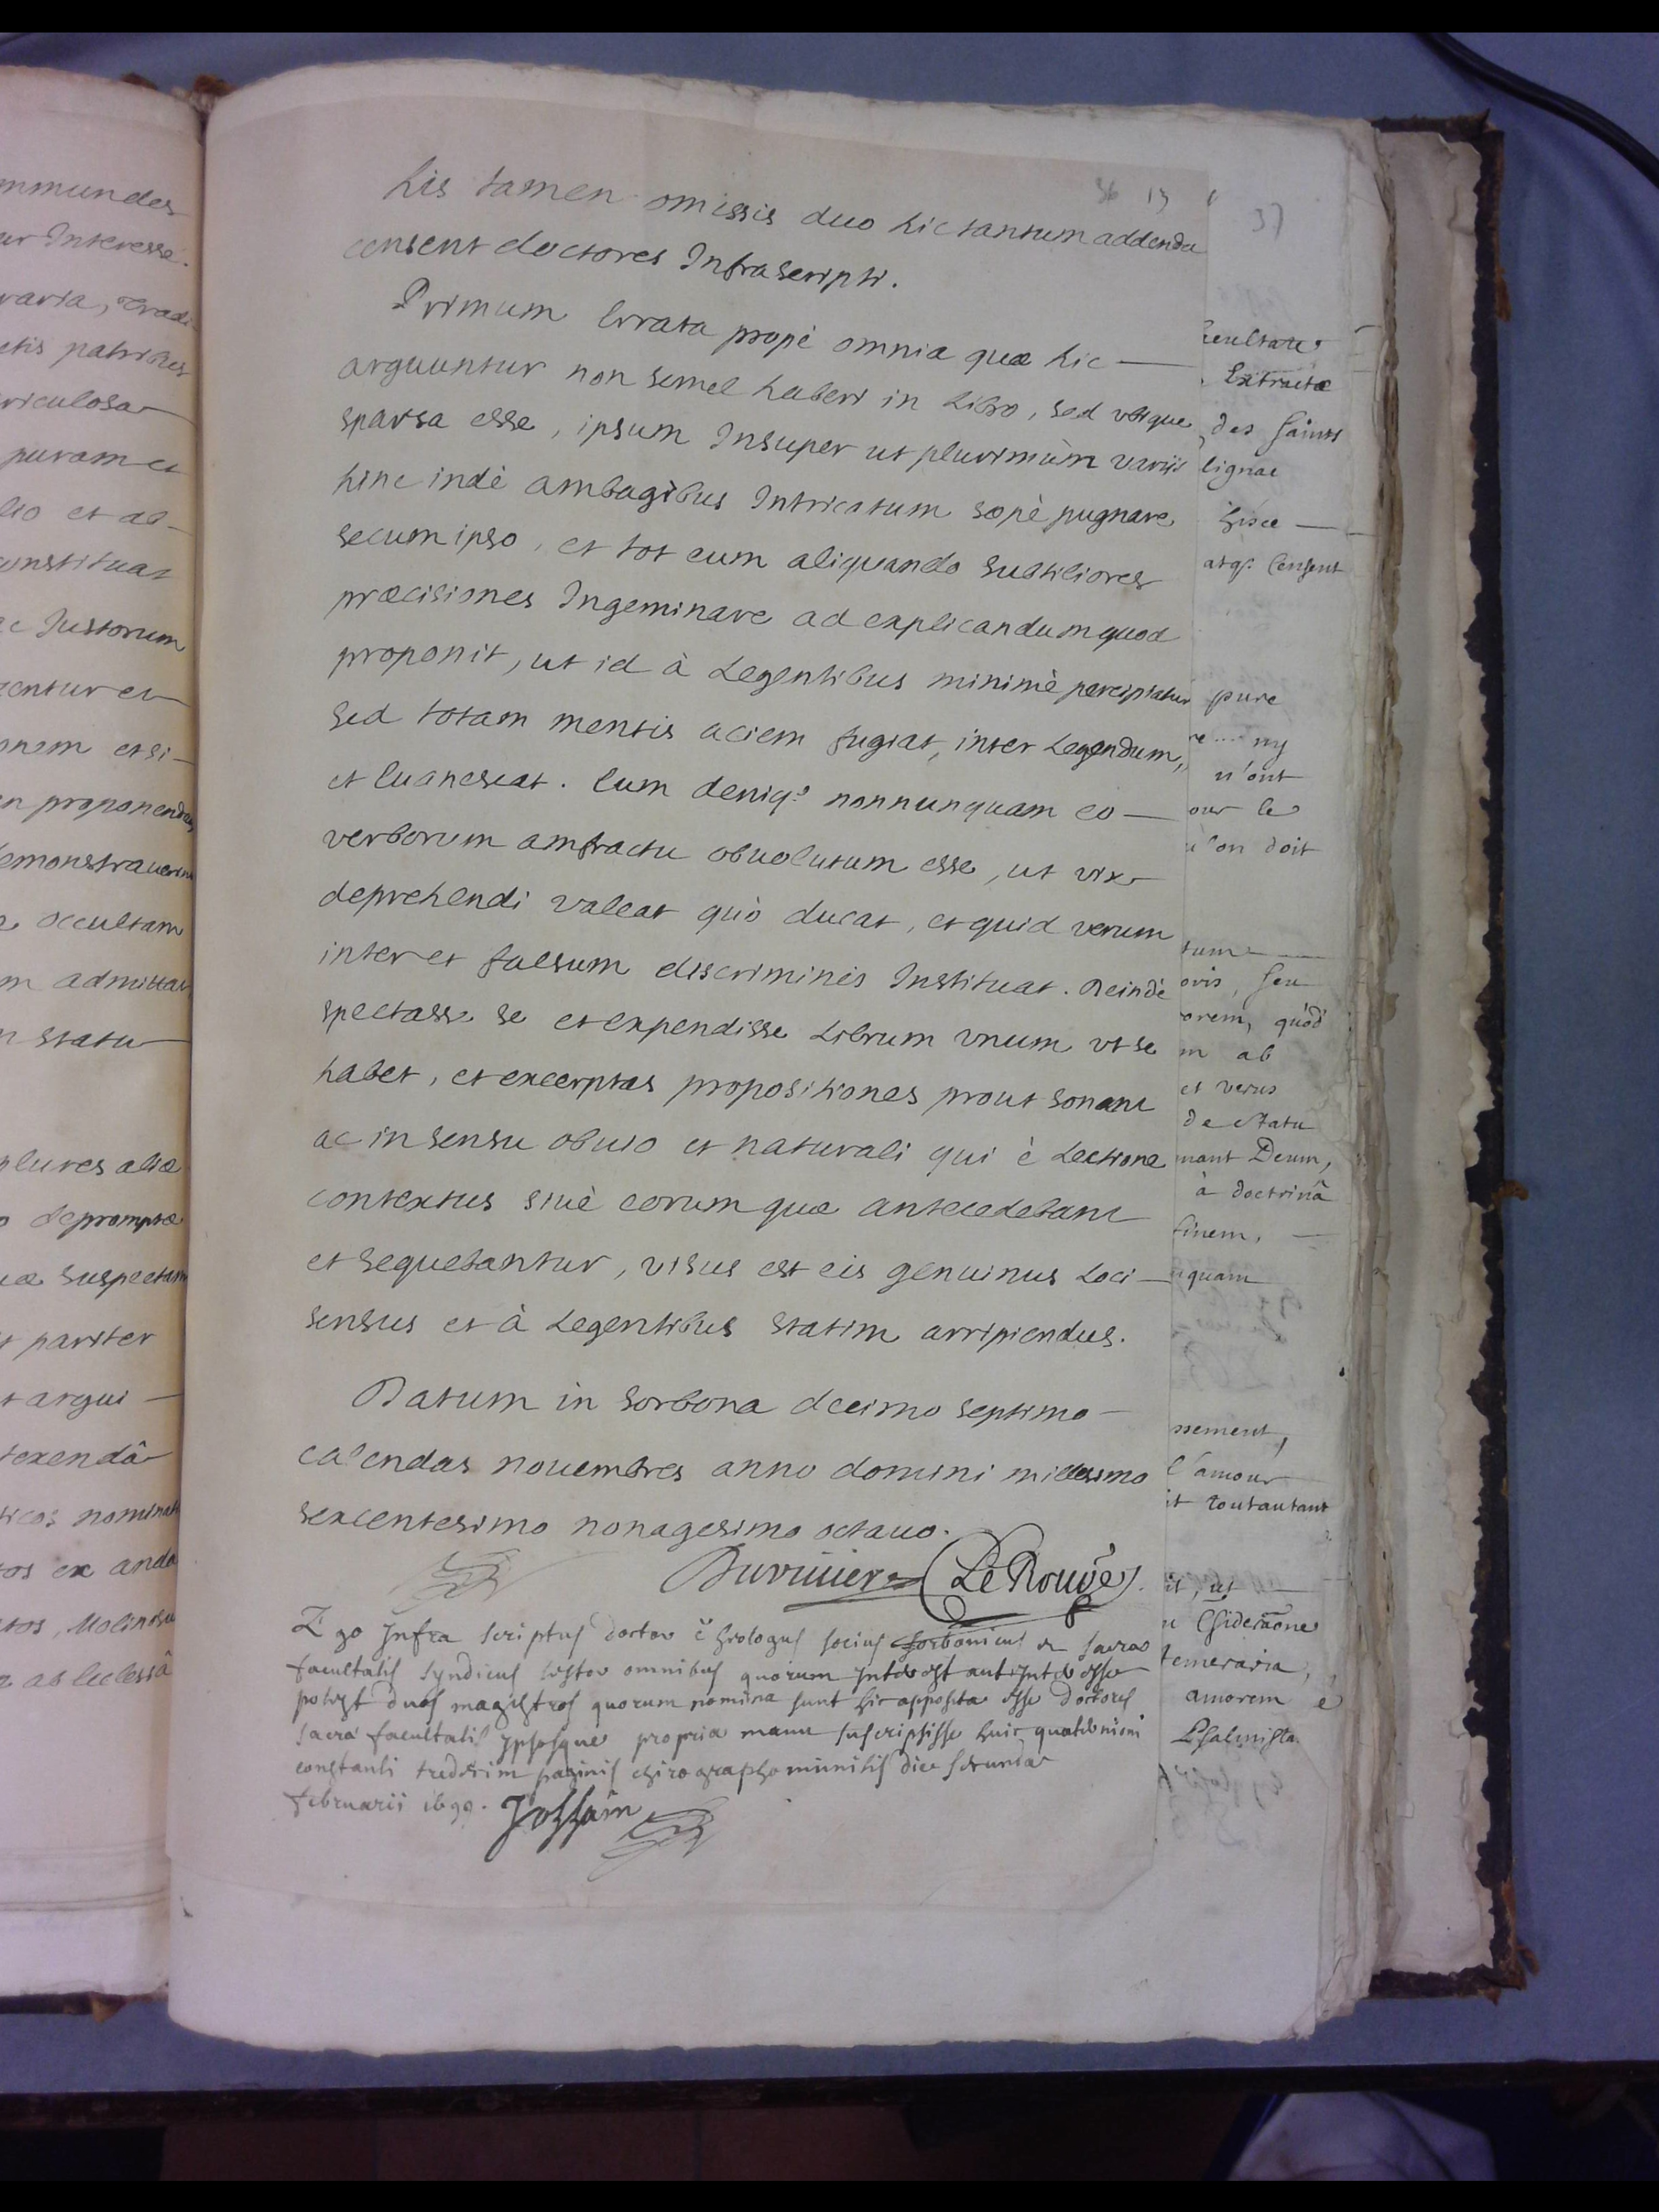 mmundes
ur Interesse.
varia, Tradi
etis patribus
riculosa
puram et
lio et ab-
constituat
ac Justorum
centur et
onem etsi-
en proponendam
demonstraverint
occultam
m admittat
n statu
plures aliæ
depromptæ
suspectam
t pariter
t argui -
texendâ
ticos nominat
tos, Molinosu
ab Ecclesiâ
36 13
37
his tamen omissis duo hic tantum addenda
censent doctores Infrascripti.
Primum Errata propè omnia quæ hic
arguuntur non semel haberi in Libro, sed ubique
sparsa esse, ipsum Insuper ut plurimùm variis
hinc indè ambagibus Intricatum sæpè pugnare
secum ipso, et tot eum aliquando subtiliores
præcisiones Ingeminare ad explicandum quod
proponit, ut id à Legentibus minimè percipiatur
sed totam mentis aciem fugiat, inter Legendum,
et Euanescat. Eum deniq: nonnunquam eo
verborum amfractu obuolutum esse, ut vix
deprehendi valeat quò ducat, et quid verum
inter et falsum discriminis Instituat. Deindè
spectasse se et expendisse Librum unum ut se
habet, et excerptas propositiones prout sonant
ac in sensu obuio et naturali qui è Lectione
contextus siuè eorum quæ antecedebant
et sequebantur, visus est eis genuinus Loci
sensus et à Legentibus statim arripiendus.
Datum in Sorbona decimo septimo
calendas nouembres anno domini millesimo
sexcentesimo nonagesimo octauo.
Durieuier Le Rouge
Ego Infra scriptus doctor theologus socius sorbonicus et sacræ
facultatis syndicus testor omnibus quorum interest aut interesse
potest duos magistros quorum nomina sunt hic apposita esse doctores
sacræ facultatis ipsosque propria manu subscripsisse huic quaternioni
constanti tredecim paginis chirographo munitis die secunda
februarii 1699. Jollain
Extractæ
des Saints
lignac
hisce
atq: Censent
pure
ny
n'ont
our le
l'on doit
tum
oris, seu
orem, quòd
m ab
et verus
de statu
mant Deum,
à doctrinâ
finem,
quam
ssement,
l'amour
it toutautant
it, ut
temeraria,
amorem è
Psalmista